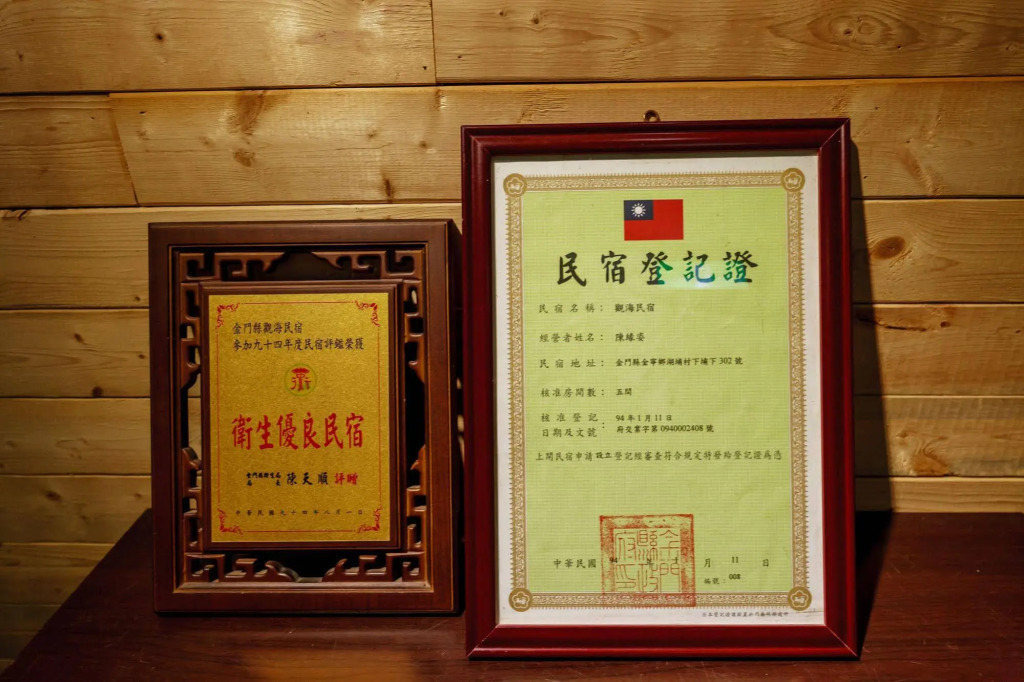 金門縣觀海民宿
參加九十四年度民宿評鑑榮獲
衛生優良民宿
金門縣衛生局
局長 陳天順 評贈
中華民國九十四年八月一日
民宿登記證
民宿名稱：觀海民宿
經營者姓名：陳緣姿
民宿地址：金門縣金寧鄉湖埔村下埔下302號
核准房間數：五間
核准登記日期及文號：94年1月11日
府交業字第0940002408號
上開民宿申請設立登記經審查符合規定特發給登記證為憑
中華民國 94 年 1 月 11 日
編號：008
金門縣政府印